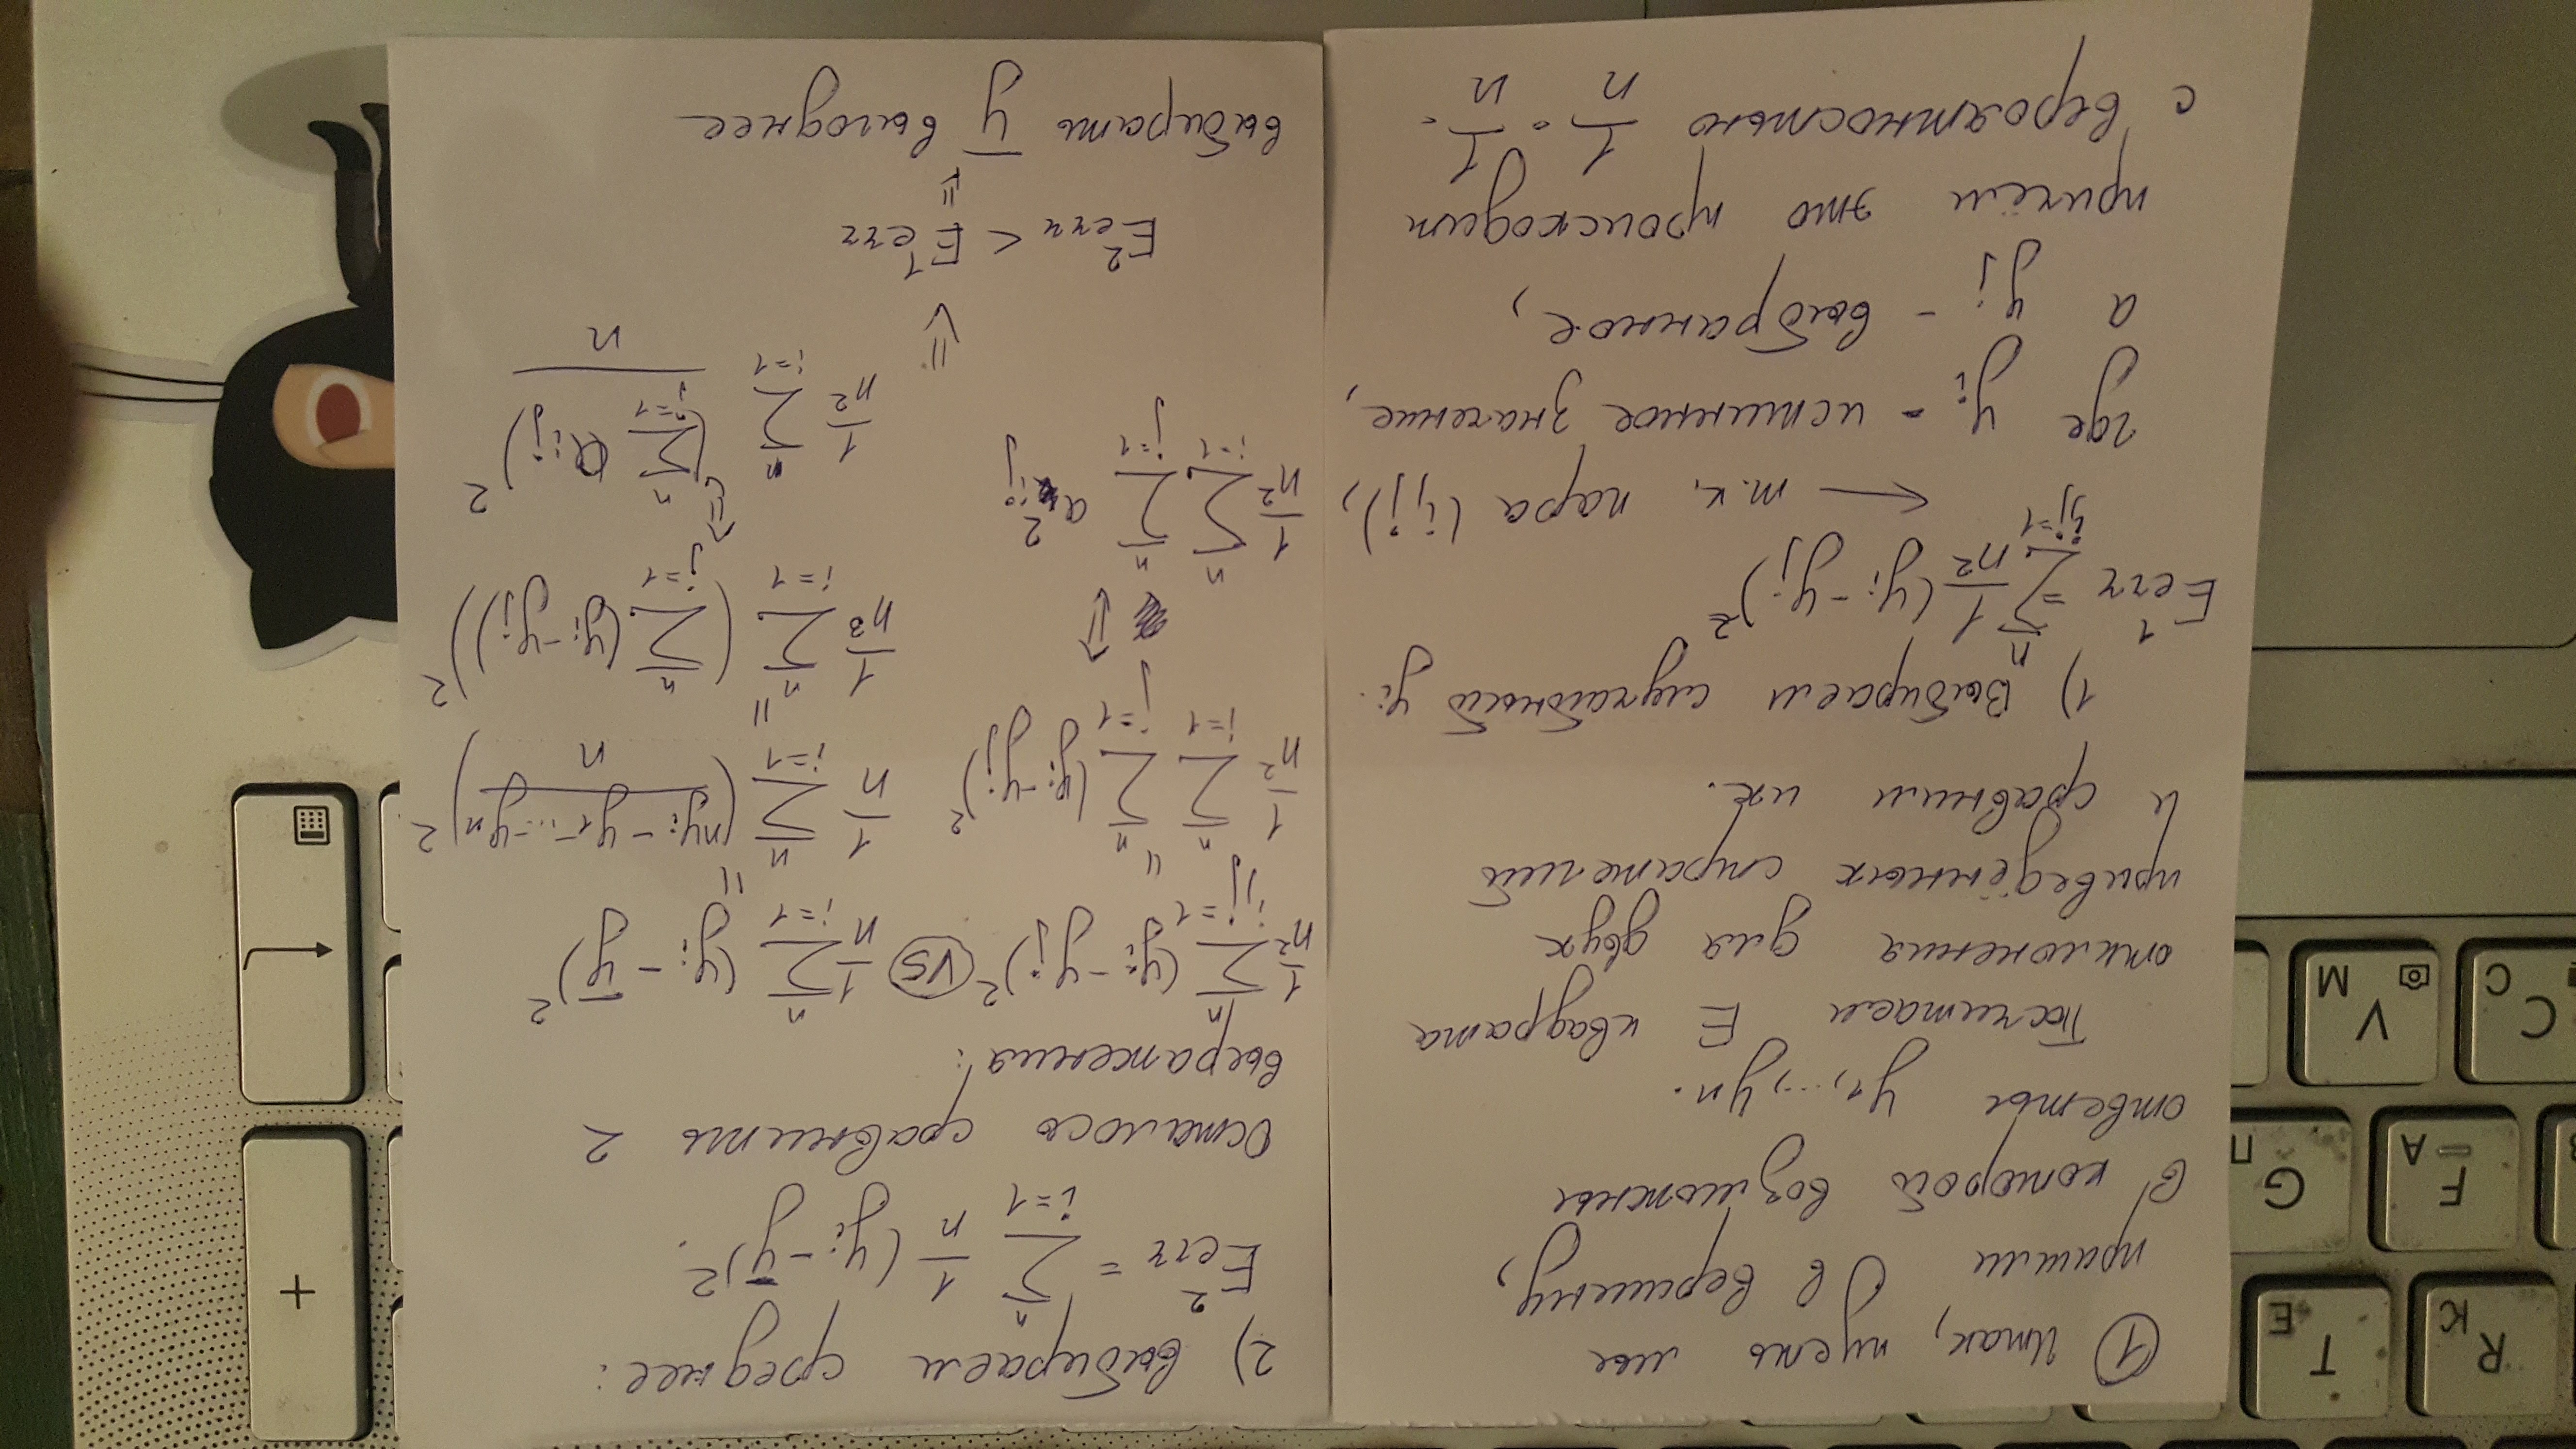 R К
T Е
F А
G П
C С
V М
+
① Итак, пусть мы
пришли в вершину,
в которой возможны
ответы y₁,...,yₙ.
Посчитаем E квадрата
отклонения для двух
приведённых стратегий
и сравним их.
1) Выбираем случайный yᵢ.
E¹err = Σⁿ_{i,j=1} 1/n² (yᵢ - yⱼ)²
← т.к. пара (i,j),
где yᵢ - истинное значение,
а yⱼ - выбранное,
причём это происходит
с вероятностью 1/n · 1/n.
2) Выбираем среднее:
E²err = Σⁿ_{i=1} 1/n (yᵢ - ȳ)².
Осталось сравнить 2
выражения:
1/n² Σⁿ_{i,j=1} (yᵢ - yⱼ)² VS 1/n Σⁿ_{i=1} (yᵢ - ȳ)²
= =
1/n² Σⁿ_{i=1} Σⁿ_{j=1} (yᵢ - yⱼ)² 1/n Σⁿ_{i=1} ((nyᵢ - y₁ - ... - yₙ)/n)²
=
⇕ 1/n³ Σⁿ_{i=1} (Σⁿ_{j=1} (yᵢ - yⱼ))²
⇕
1/n² Σⁿ_{i=1} Σⁿ_{j=1} a²ᵢⱼ 1/n² Σⁿ_{i=1} (Σⁿ_{j=1} aᵢⱼ)²/n
⇓
E²err < E¹err
⇓
выбирать ȳ выгоднее